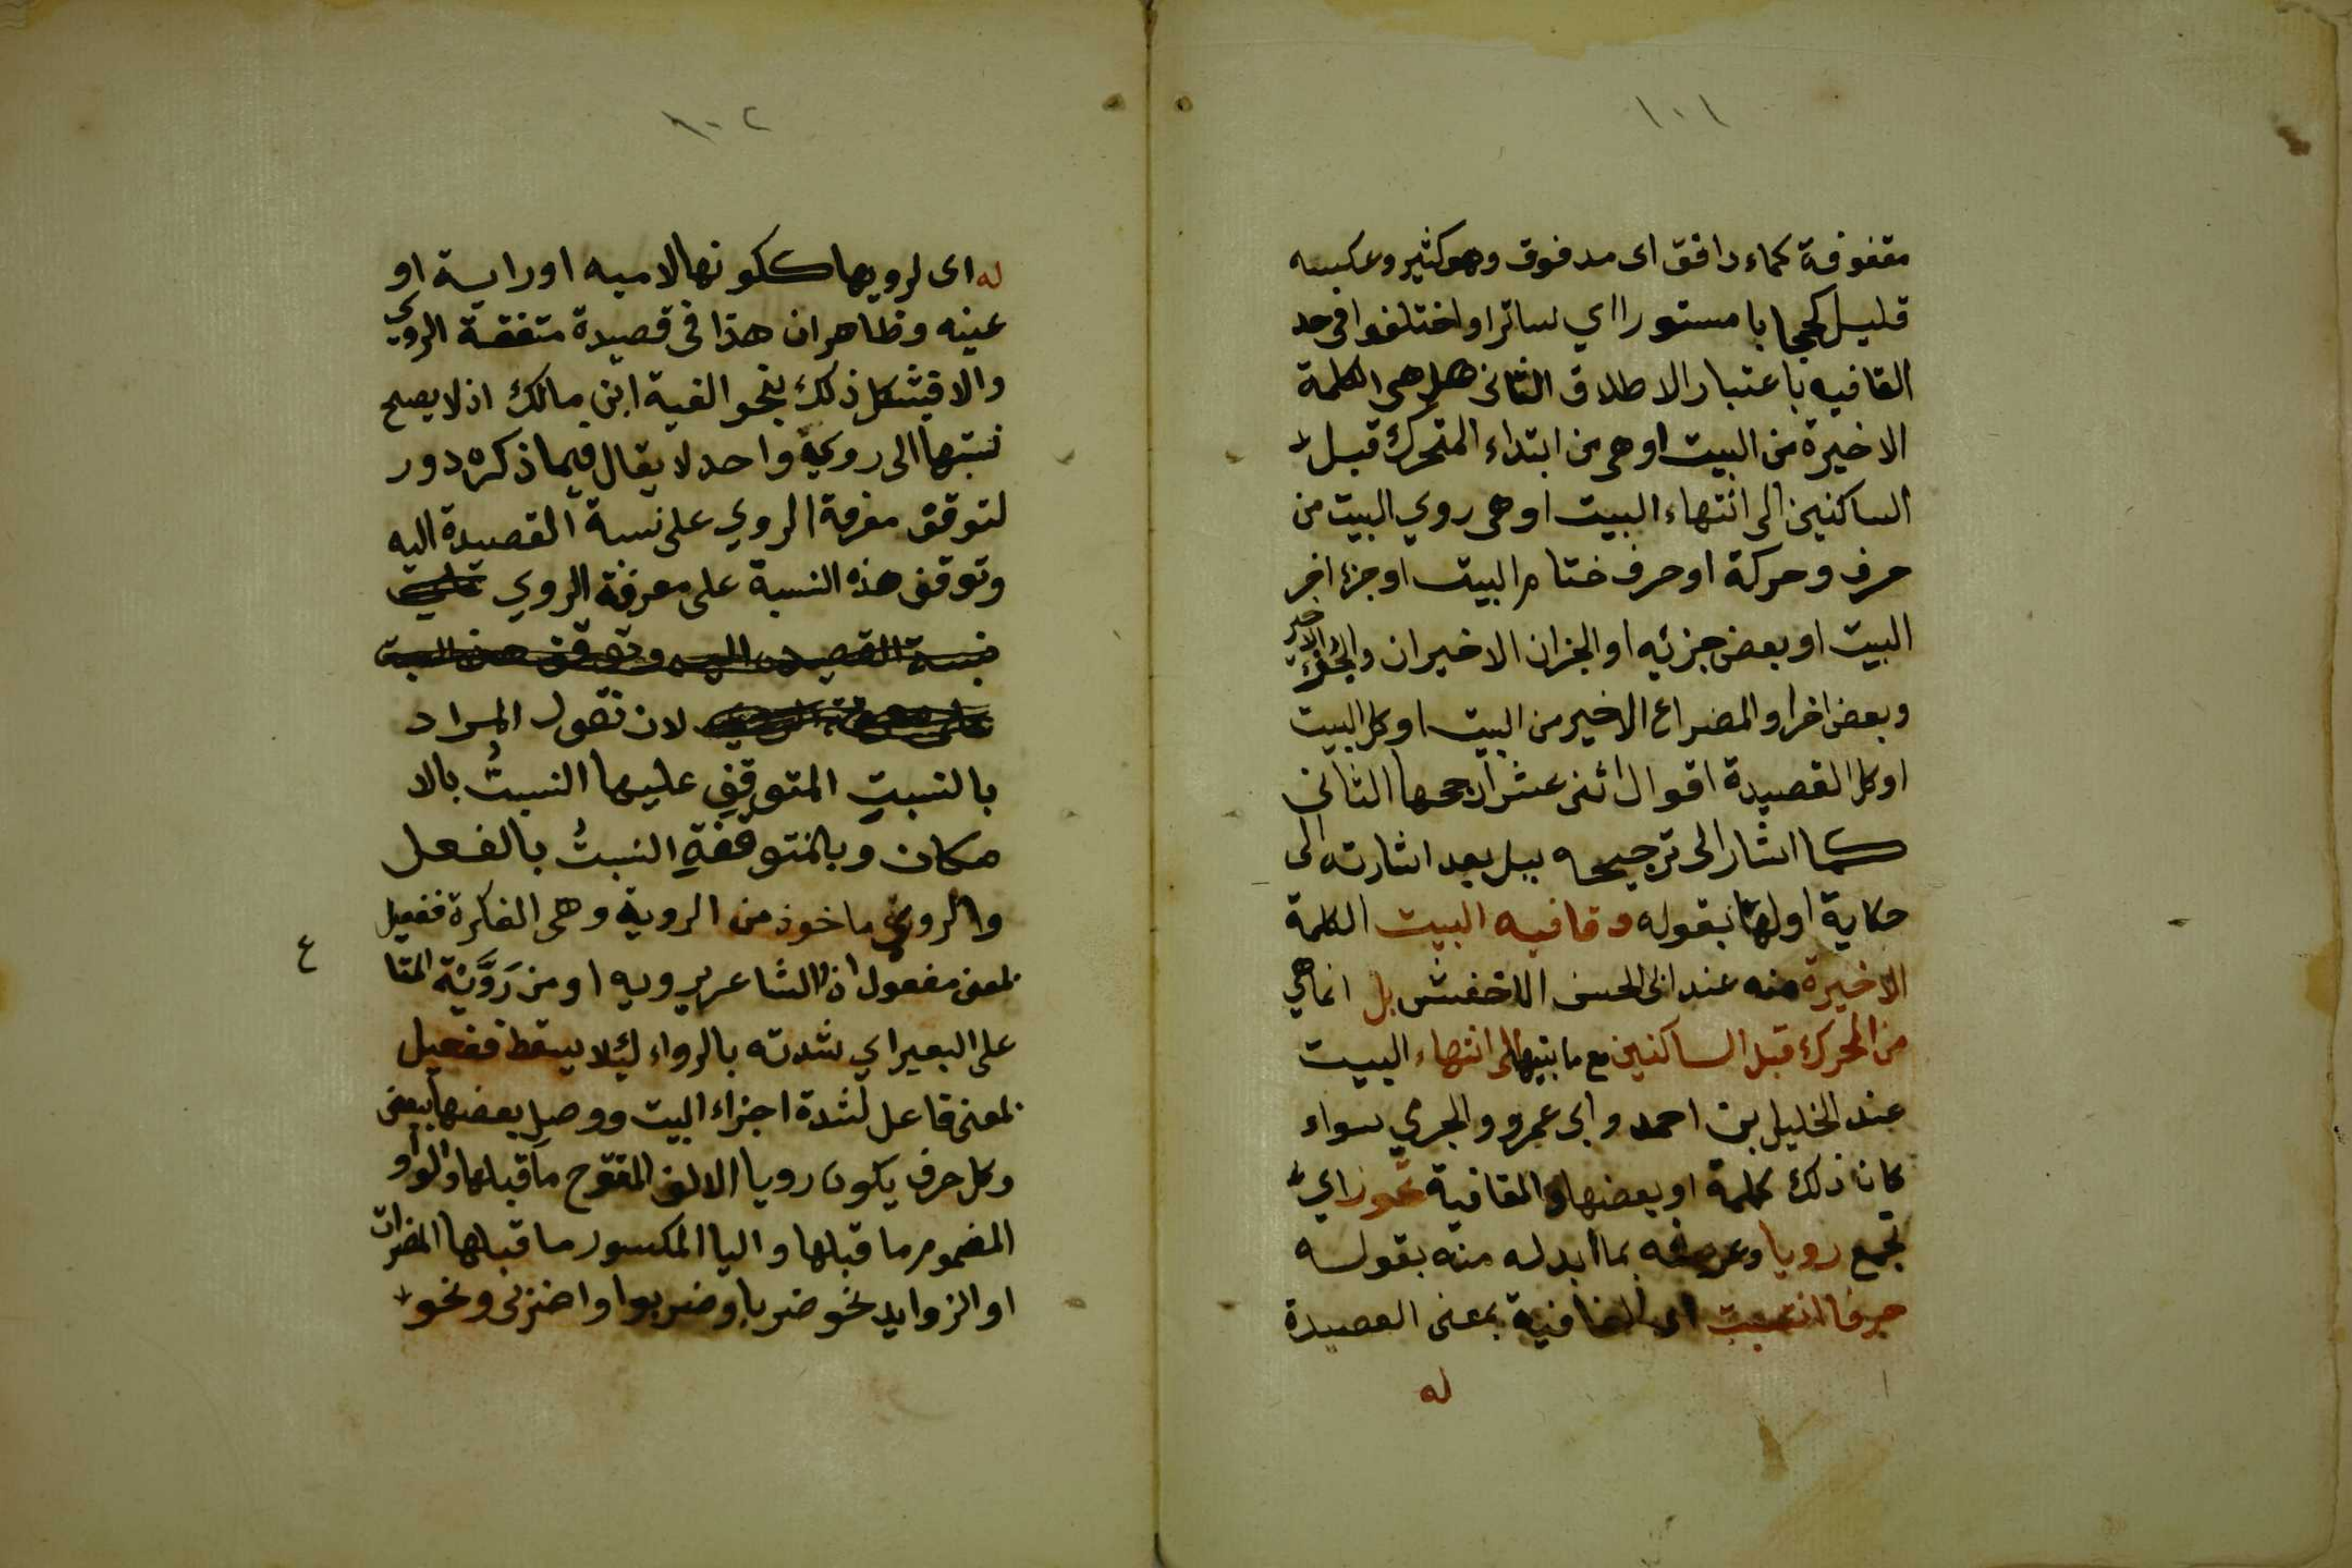 ١٠١
مقفوفة كماء دافق اى مدفوق وهو كثير وعكسه
قليل كحجابا مستورا اي ساترا واختلفوا فى حد
القافيه باعتبار الاطلاق الثانى هل هى الكلمة
الاخيرة من البيت او هى من ابتداء المتحرك قبل
الساكنين الى انتهاء البيت او هى روي البيت من
حرف وحركة او حرف ختام البيت او جزء اخر
البيت او بعض جزئيه او الجزان الاخيران والجزء الاخير
وبعض اخر او المضراع الاخير من البيت او كل البيت
او كل القصيدة اقوال اثنى عشر ارجحها الثانى
كما اشار الى ترجيحه ببل بعد اشارته الى
حكاية اولها بقوله وقافيه البيت الكلمة
الاخيرة منه عند ابى الحسن الاخفش بل انما هي
من المحرك قبل الساكنين مع ما بينهما الى انتهاء البيت
عند الخليل بن احمد وابى عمرو والجرمي سواء
كان ذلك كلمة او بعضها والقافية تحوز اي
تجمع رويا وعرفه بما ابدله منه بقوله
حرفا انتسبت اى القافية بمعنى القصيدة
له
١٠٢
له اى لرويها ككونها لاميه او رايية او
عينه وظاهر ان هذا فى قصيدة متفقة الروي
والا فيشكل ذلك بنحو الفية ابن مالك اذ لا يصح
نسبتها الى روي واحد لا يقال فيما ذكره دور
لتوقف معرفة الروي على نسبة القصيدة اليه
وتوقف هذه النسبة على معرفة الروي
نسبة القصيدة اليه وتوقف هذه النسبة
لان نقول المراد
بالنسبت المتوقف عليها النسبتُ بالا
مكان وبالمتوقفةِ النسبتُ بالفعل
والروي ماخوذ من الروية وهى الفكرة ففعيل
بمعنى مفعول اذ الشاعر يرويه او من رَوَّيْة المتا
ع
على البعير اي شدته بالرواء لئلا يسقط ففعيل
بمعنى فاعل لشدة اجزاء البيت ووصل بعضها ببعض
وكل حرف يكون رويا الا الالف المفتوح ما قبلها والواو
المضموم ما قبلها واليا المكسور ما قبلها المضمرات
او الزوايد نحو ضربا وضربوا واضربى ونحو